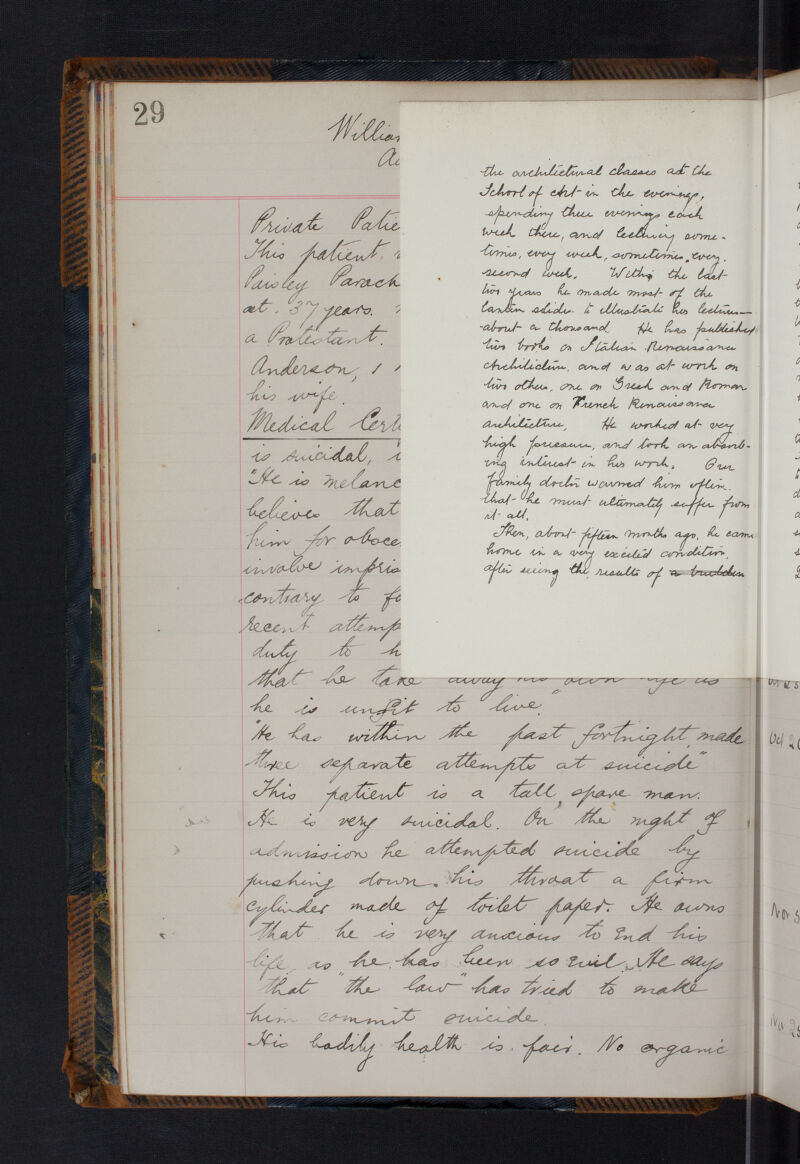 29
William
Private Patie
This patient,
Paisley Paroch
aet. 37 years.
a Protestant.
Anderson, 1
his wife.
Medical Cert
is suicidal,
"He is melanc
believes that
him for obsce
involve impris
contrary to fa
recent attemp
duty to h
that he take away his own life as
he is unfit to live."
"He has within the past fortnight made
three separate attempts at suicide"
This patient is a tall, spare man.
He is very suicidal. On the night of
admission he attempted suicide by
pushing down his throat a firm
cylinder made of toilet paper. He owns
that he is very anxious to end his
life, as he has been so evil. He says
that "the law" has tried to make
him commit suicide.
His bodily health is fair. No organic
the architectural classes at the
School of Art in the evenings,
spending three evenings each
week there, and lecturing some-
times, every week, sometimes, every
second week. Within the last
two years he made most of the
lantern slides to illustrate his lectures—
about a thousand He has published
two books on Italian Renaissance
Architecture, and was at work on
two others, one on Greek and Roman
and one on French Renaissance
architecture. He worked at very
high pressure, and took an absorb-
ing interest in his work. Our
family doctor warned him often
that he must ultimately suffer from
it all.
Then, about fifteen months ago, he came
home in a very excited condition,
after seeing the results of a builder
Oct 2
Nov 5
Nov 25